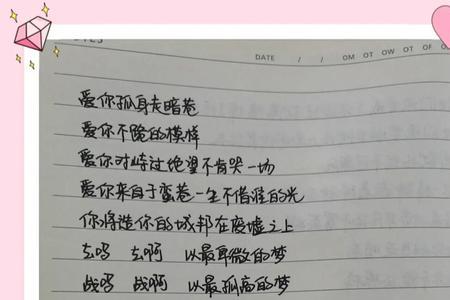 DATE / / OM OT OW OT OF O
爱你孤身走暗巷
爱你不跪的模样
爱你对峙过绝望不肯哭一场
爱你来自于蛮巷一生不借谁的光
你将造你的城邦在废墟之上
去吗 去啊 以最卑微的梦
战吗 战啊 以最孤高的梦